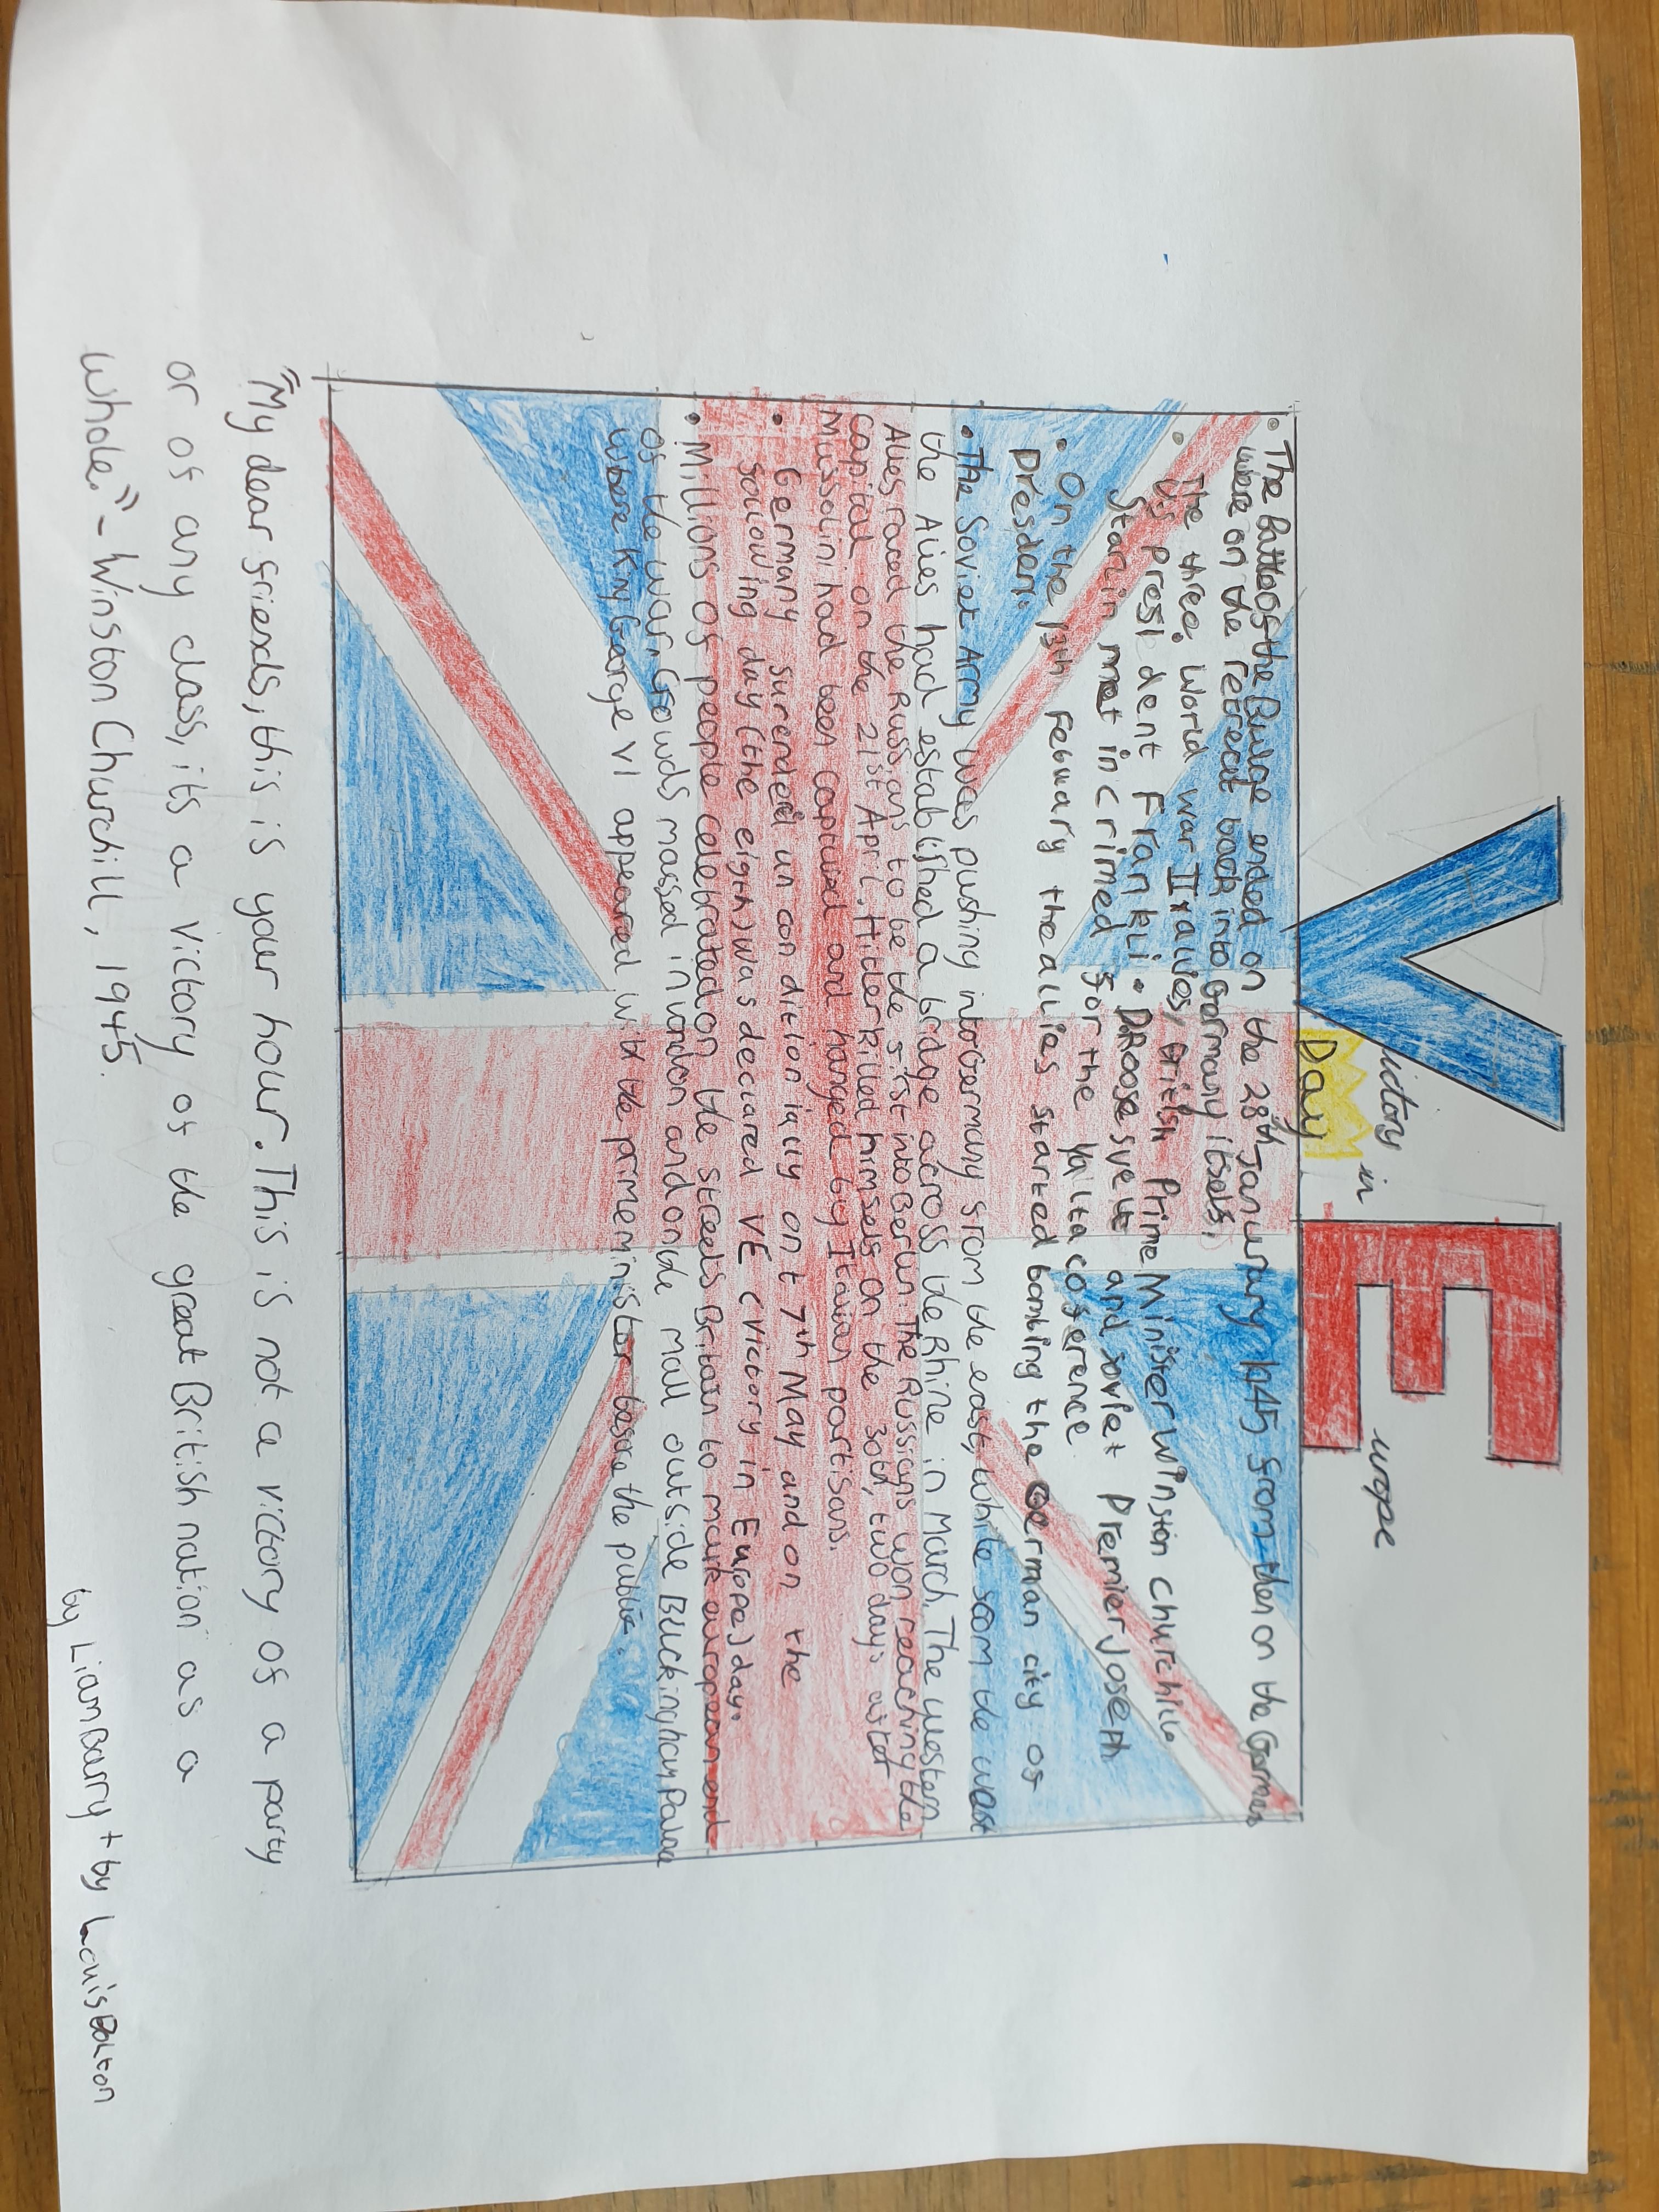 V E
victory in urope
Day
• The Battle of the Bulge ended on the 28th Janurary 1945 from then on the Germans
were on the retreat back into Germany itself.
• The three World war II allies, British Prime Minister Winston churchill
US president Franklin D Roosesvelt and soviet Premier Joseph
Starlin met in crimed for the Yalta coference
• On the 13th Febuary the allies started bombing the German city of
Dresden.
• The Soviet Army was pushing into Germany from the east, while from the west
the Allies had established a bridge across the Rhine in March. The western
Allies raced the Russians to be the first into Berlin. The Russians won reaching the
capital on the 21st April. Hitler killed himself on the 30th, two days after
Mussolini had been captured and hanged by Italian partisans.
• Germany surenderd un con dition ially on t 7th May and on the
folowing day (the eigth) was declared VE (victory in Europe) day.
• Millions of people celebrated on the streets Britain to mark european end
of the war. Crowds massed in london and on the mall outside Buckingham Palace
where King George VI appeared with the prime minister before the public.
"My dear friends, this is your hour. This is not a victory of a party
or of any class, its a victory of the great British nation as a
whole." - Winston Churchill, 1945.
by Liam Barry + by Louis Bolton